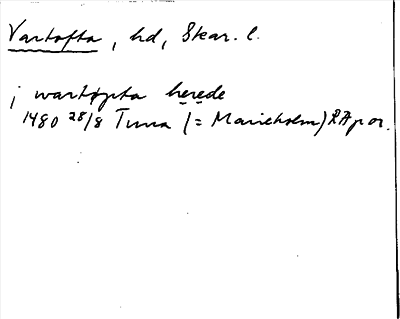 Vartofta, hd, Skar. l.
i wartopta herede
1480 28/8 Tuna (= Marieholm) RAp or.